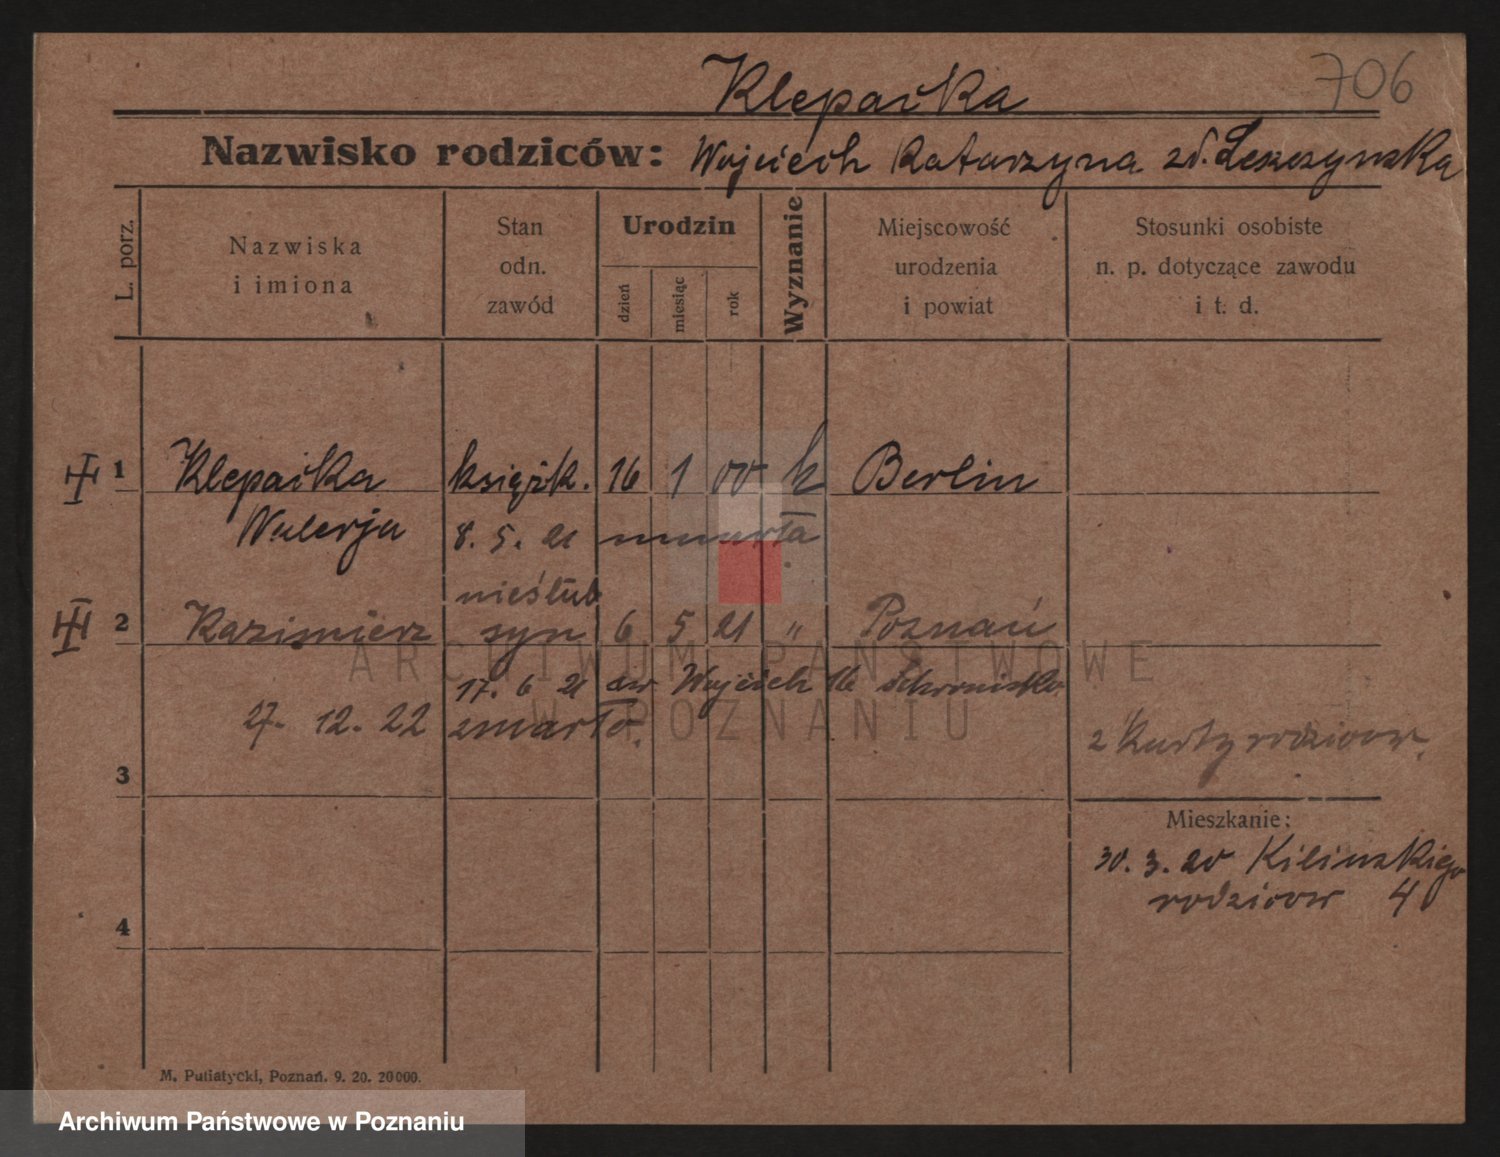 706
Klepaćka
Nazwisko rodziców: Wojciech Katarzyna zd. Leszczynska
L. porz.
Nazwiska
i imiona
Stan
odn.
zawód
Urodzin
dzień
miesiąc
rok
Wyznanie
Miejscowość
urodzenia
i powiat
Stosunki osobiste
n. p. dotyczące zawodu
i t. d.
1 Klepaćka książk. 16 1 00 k Berlin
Walerja 8. 5. 21 umarła
nieślub
2 Kazimierz syn 6 5 21 " Poznań
17. 6 21 św Wojciech 16 Schronisko
27. 12. 22 zmarło.
2 Karty rodziców.
3
Mieszkanie:
30. 3. 20 Kilinskiego
rodzicow 4
4
M. Putiatycki, Poznań. 9. 20. 20000.
ARCHIWUM PAŃSTWOWE
W POZNANIU
Archiwum Państwowe w Poznaniu